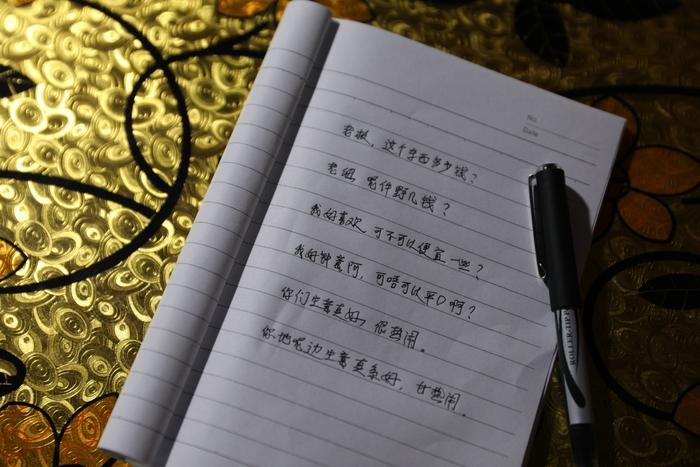 No.
Date
老板，这个东西多少钱？
老细，呢件野几钱？
我好喜欢，可不可以便宜一些？
我好钟意阿，可唔可以平D啊？
你们生意真好，很热闹。
你地呢边生意真系好，甘热闹。
ROLLER-TIP